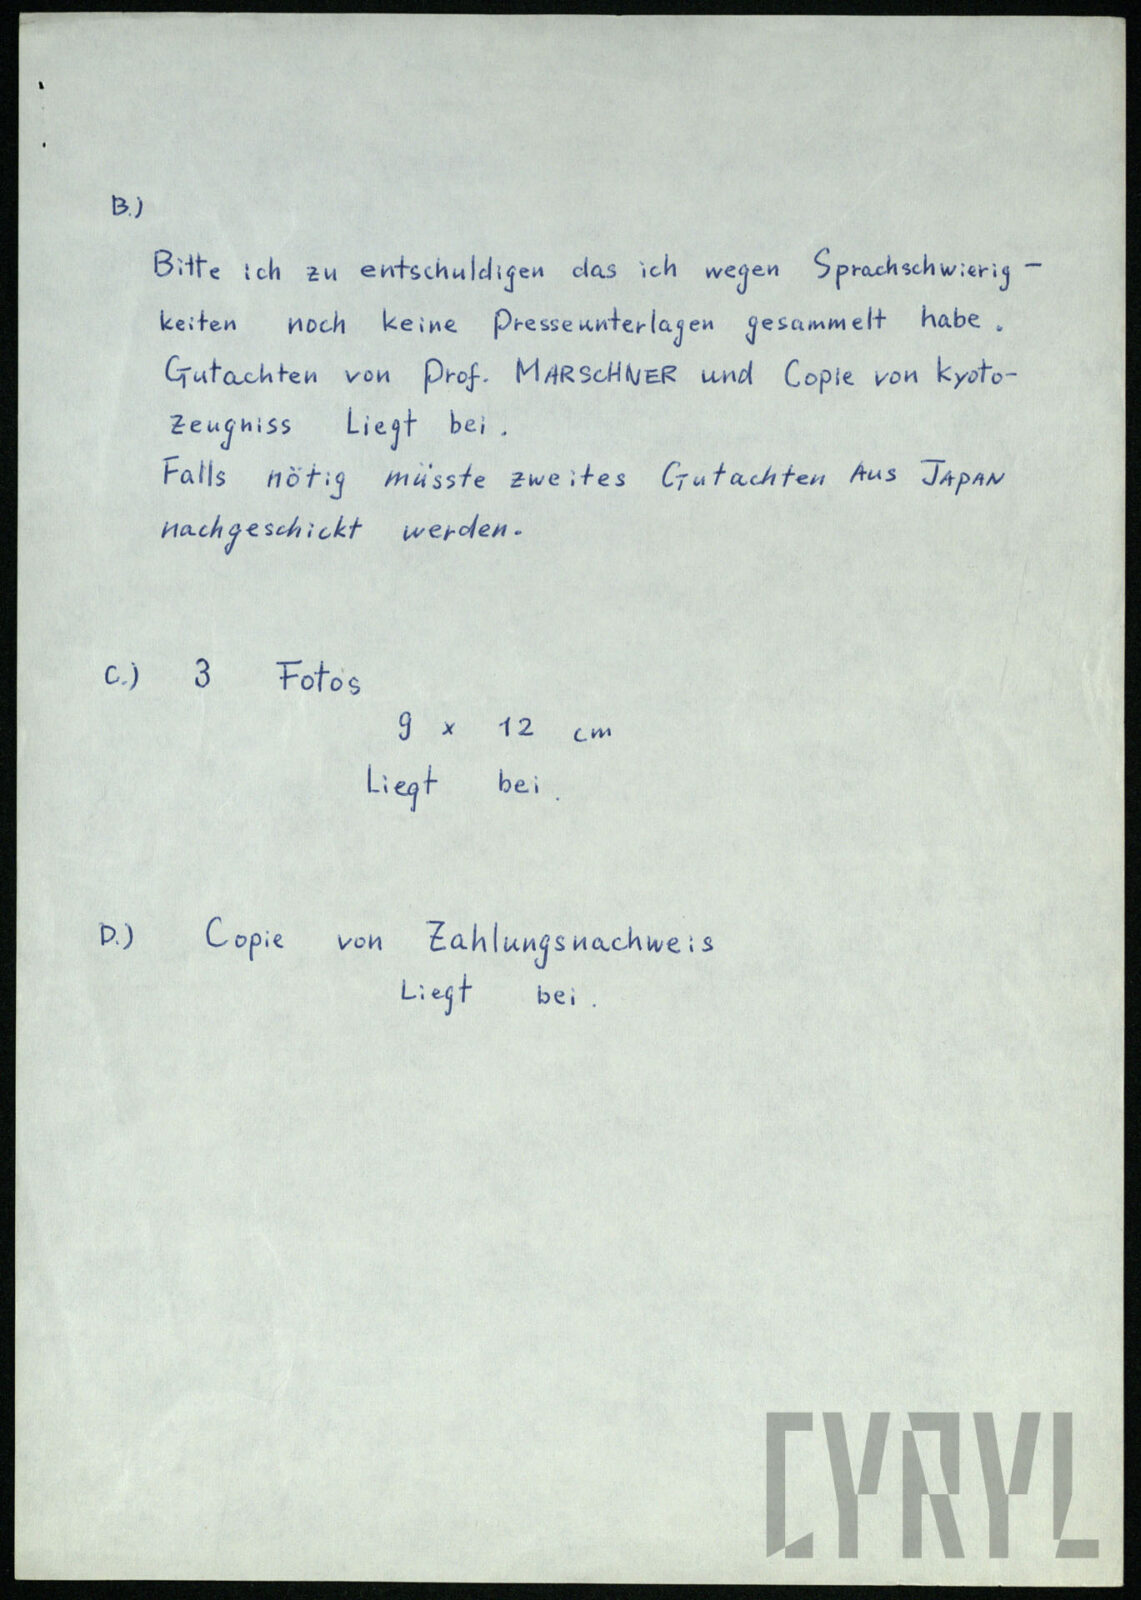 B.)
Bitte ich zu entschuldigen das ich wegen Sprachschwierig-
keiten noch keine Presseunterlagen gesammelt habe.
Gutachten von Prof. MARSCHNER und Copie von Kyoto-
Zeugniss Liegt bei.
Falls nötig müsste zweites Gutachten Aus JAPAN
nachgeschickt werden.
C.) 3 Fotos
9 x 12 cm
Liegt bei.
D.) Copie von Zahlungsnachweis
Liegt bei.
CYRYL